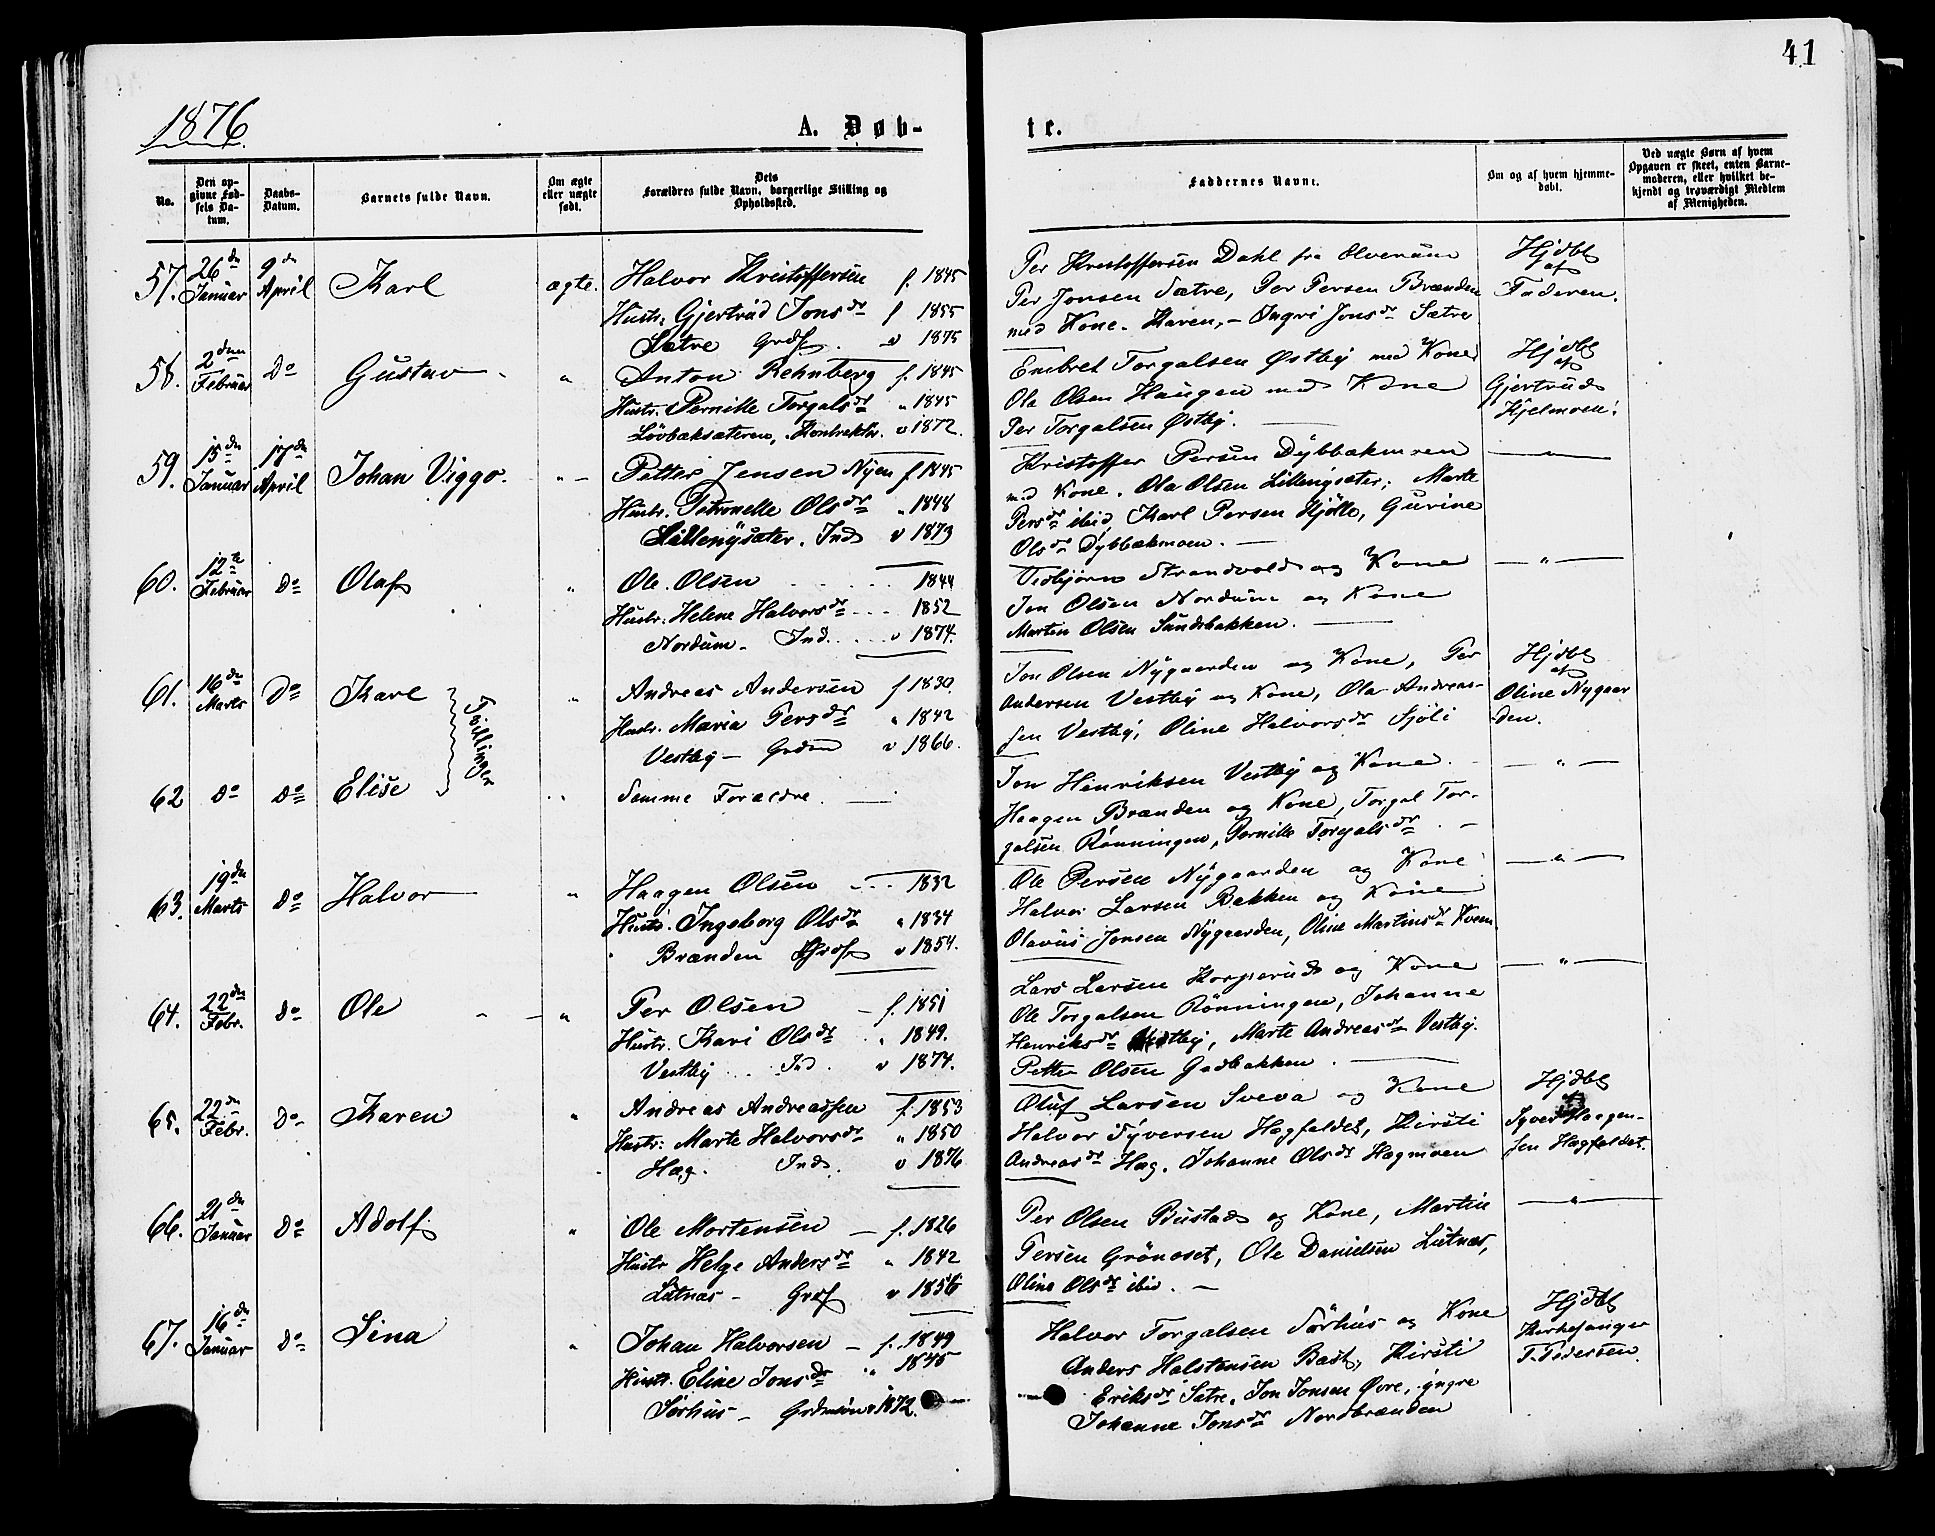 41
1876
A. Døb-
te.
No.
Den opgivne Fødsels Datum.
Daabs-Datum.
Barnets fulde Navn.
Om ægte eller uægte født.
Dets Forældres fulde Navn, borgerlige Stilling og Opholdssted.
Faddernes Navne.
Om og af hvem hjemmedøbt.
Ved uægte Børn af hvem Opgaven er skeet, enten Barnemoderen, eller hvilket bekjendt og troværdigt Medlem af Menigheden.
57. 26de Januar 9de April Karl ægte. Halvor Kristoffersen f. 1845
Hustr. Gjertrud Jonsdr f 1855
Sætre Grdf. v 1875
Per Kristoffersen Dahl fra Elverum
Per Jonsen Sætre, Per Persen Brænden
med Kone. Karen, - Ingri Jonsdr Sætre
Hjdbt
af
Faderen.
58. 2den Februar Do Gustav " Anton Rehnberg f. 1845
Hustr. Pernille Torgalsdr " 1845
Løvbæksæteren, Kontraktr. v 1872.
Embret Torgalsen Østby med Kone
Ola Olsen Haugen med Kone
Per Torgalsen Østby.
Hjdbt
af
Gjertrud
Kjelmoen.
59. 15de Januar 17de April Johan Viggo. " Petter Jensen Nyen f. 1845
Hustr. Petronelle Olsdr " 1848
Lillengsæter. Ind v 1873
Kristoffer Persen Dybbækmoen
med Kone. Ola Olsen Lillengsæter; Marte
Persdr ibid, Karl Persen Kjølle, Gurine
Olsdr Dybbækmoen.
"
60. 12te Februar Do Olaf " Ole Olsen 1844
Hustr. Helene Halvorsdr 1852
Nordum - Ind. v 1874.
Vebjørn Strandvold og Kone
Jon Olsen Nordum og Kone
Martin Olsen Sundsbakken.
"
61. 16de Marts Do Karl " Andreas Andersen f 1830.
Tvillinger
Hustr. Maria Persdr " 1842
Vestby - Grdm v 1866.
Jon Olsen Nygaarden og Kone, Per
Andersen Vestby og Kone, Ola Andreas-
sen Vestby, Oline Halvorsdr Sjøli
Hjdbt
af
Oline Nygaar
den.
62 Do Do Elise " Samme Forældre.
Jon Henriksen Vestby og Kone.
Haagen Brænden og Kone, Torgal Tor-
galsen Rønningen, Pernille Torgalsdr.
"
63. 19de Marts Do Halvor " Haagen Olsen 1832
Hustr. Ingeborg Olsdr " 1834
Brænden Grdf v 1854.
Ole Persen Nygaarden og Kone
Halvor Larsen Bakken og Kone
Olavus Jonsen Nygaarden, Oline Martinsdr Kvern
"
64. 22de Febr. Do Ole " Per Olsen f. 1851
Hustr. Kari Olsdr " 1849.
Vestby Ind. v 1874.
Lars Larsen Korperud og Kone
Ole Torgalsen Rønningen, Johanne
Henriksdr Vestby, Marte Andreasdr Vestby.
Petter Olsen Gadbakken.
"
65. 22de Febr. Do Karen " Andreas Andreassen f. 1853
Hustr. Marte Halvorsdr " 1850
Hag. Ind. v 1876
Oluf Larsen Sveva og Kone
Halvor Syversen Hagfaldet, Kirsti
Andreasdr Hag. Johanne Olsdr Hagmoen
Hjdbt
af
Syver Haagen-
sen Hagfaldet.
66. 21de Januar Do Adolf " Ole Mortensen f. 1826
Hustr Helge Andersdr " 1842
Lutnæs - Grdf v 1856
Per Olsen Bustad og Kone, Martin
Persen Grønoset, Ole Danielsen Lutnæs,
Oline Olsdr ibid.
"
67. 16de Januar Do Lina " Johan Halvorsen f. 1849
Hustr. Eline Jonsdr " 1845
Sørhus - Grdmsøn v 1872.
Halvor Torgalsen Sørhus og Kone
Anders Halstensen Bast, Kirsti
Eriksdr Sætre. Jon Jonsen Øvre, yngre
Johanne Jonsdr Nordbrænden
Hjdbt
Kirkesanger
T. Pedersen.